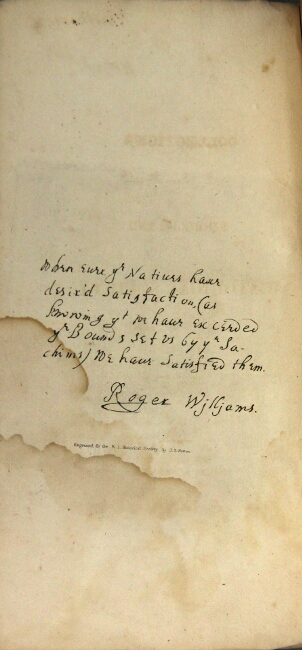 When eure yr Natiues haue
desir'd Satisfaction, (as
knowing yt we haue Exceeded
yr Bounds Set vs by yr Sa-
chims) We haue Satisfied them.
Roger Williams.
Engraved for the R. I. Historical Society, by